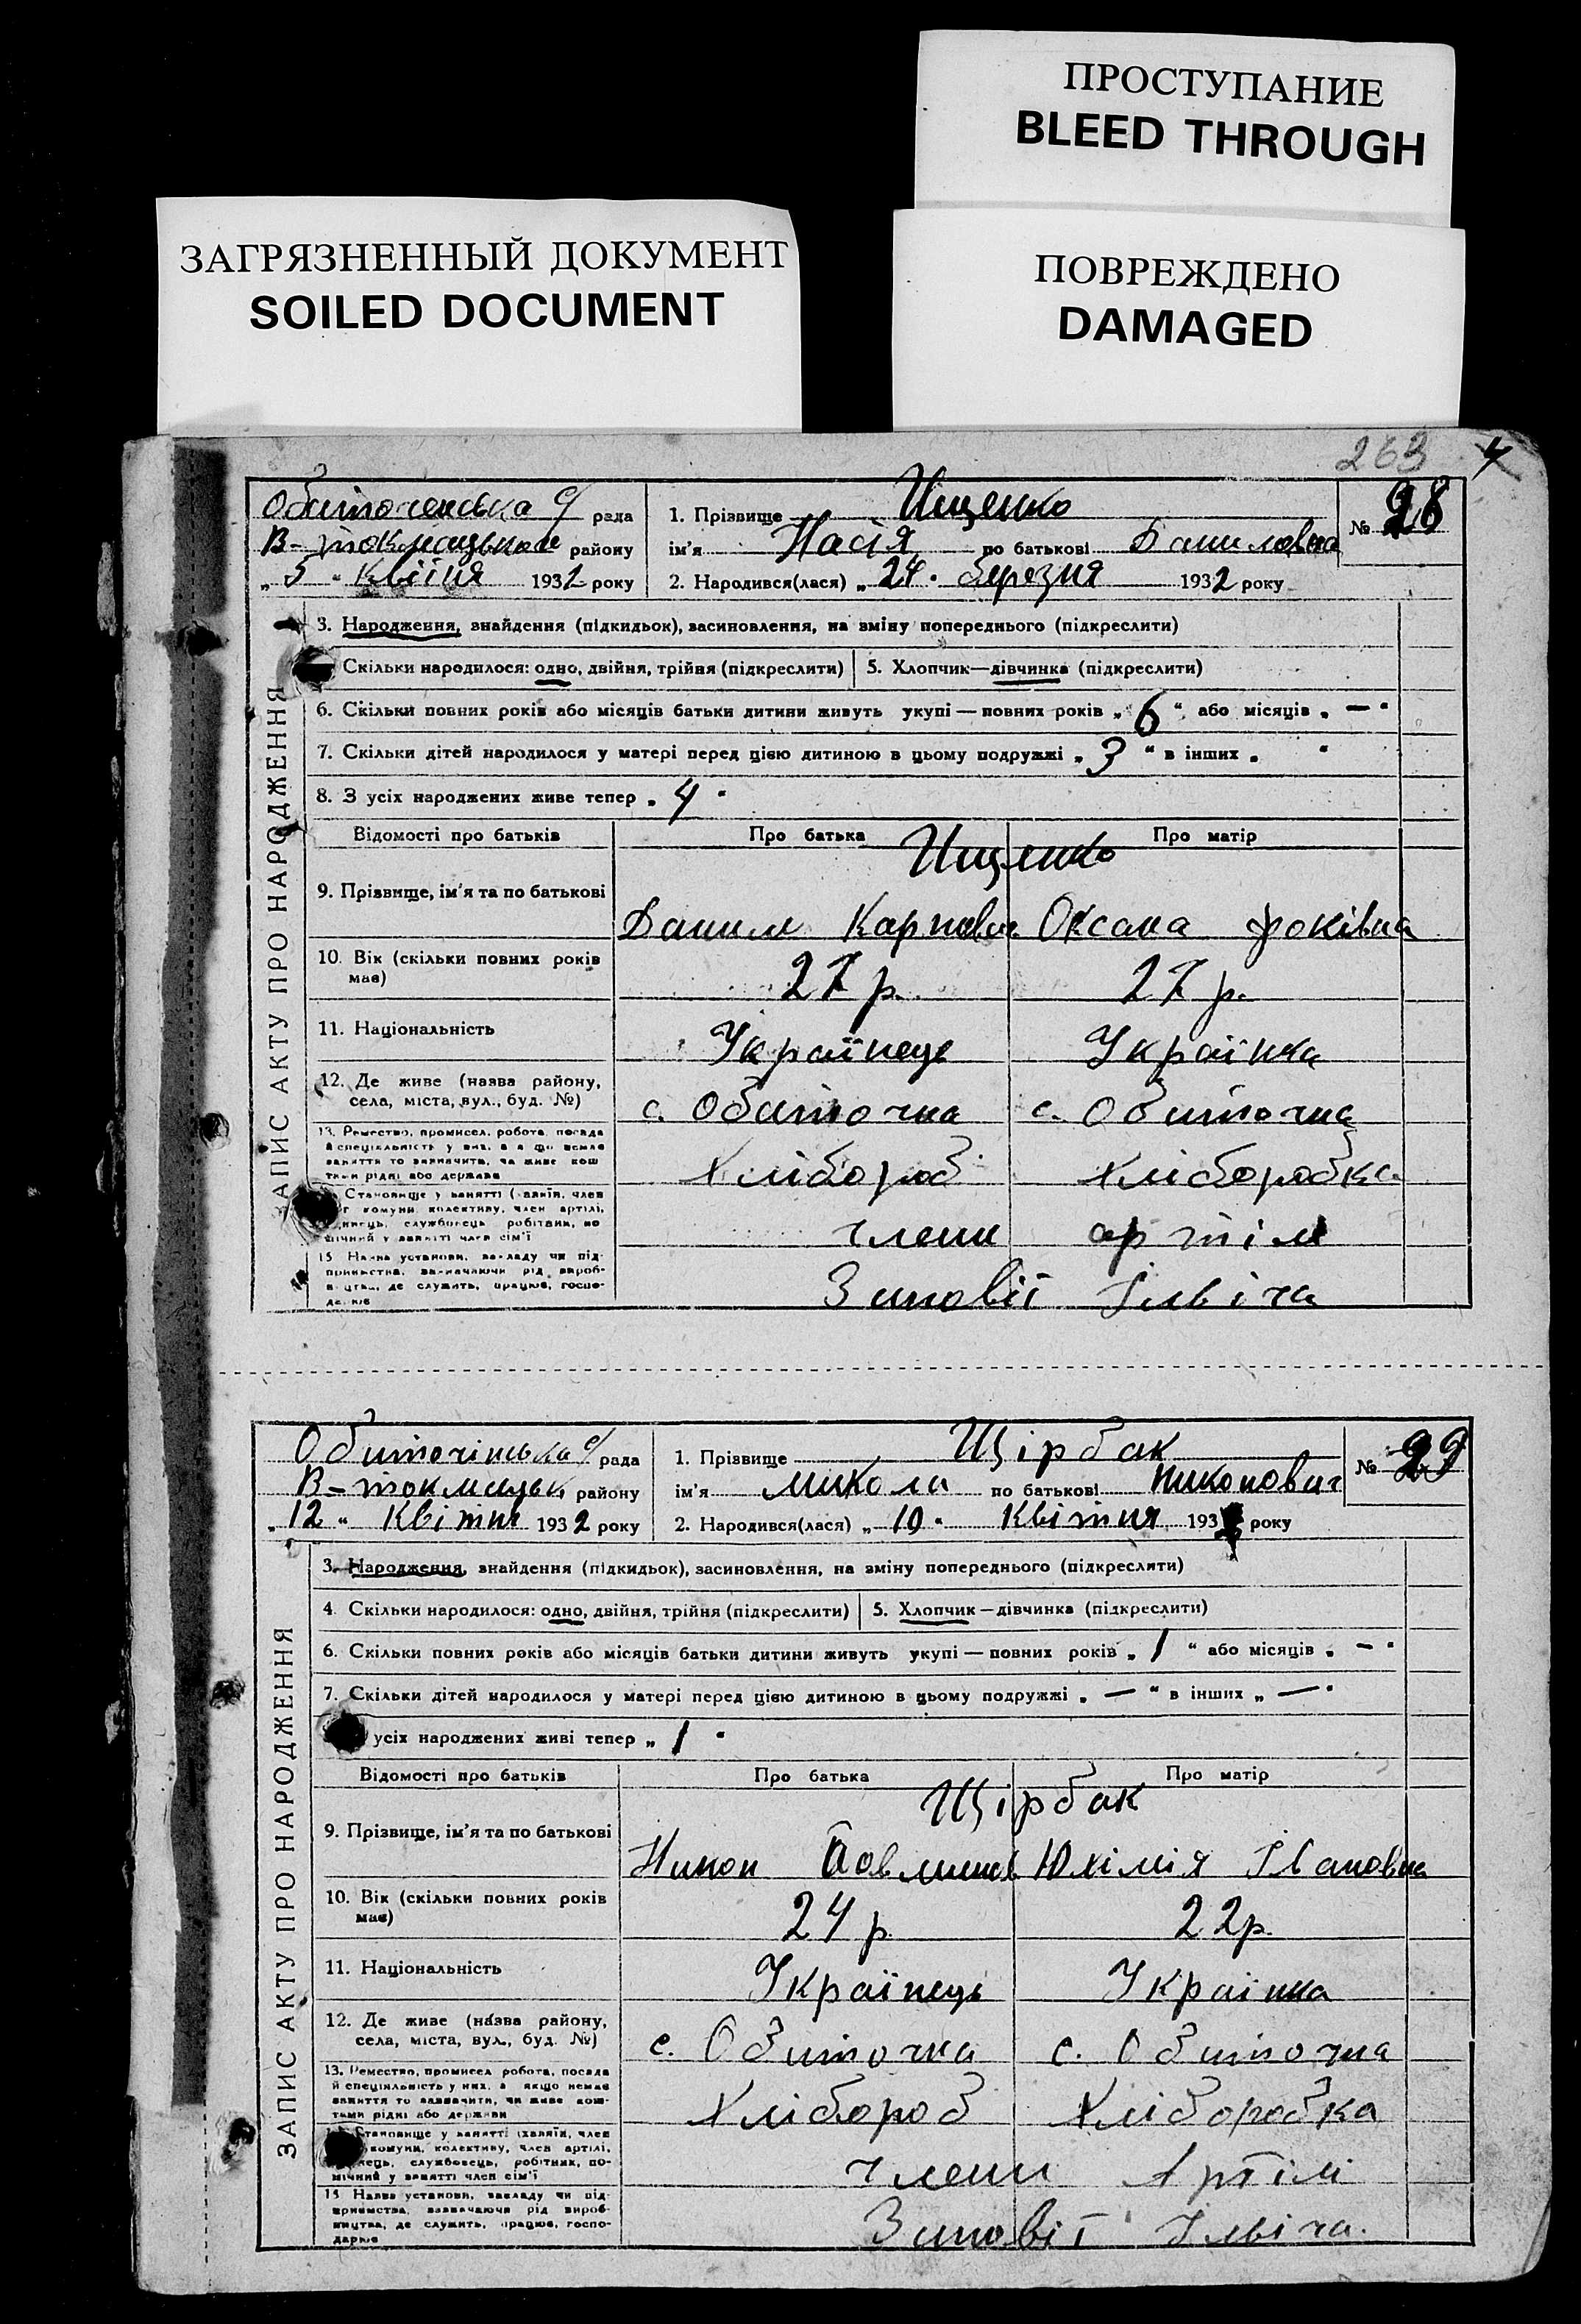 ПРОСТУПАНИЕ
BLEED THROUGH
ЗАГРЯЗНЕННЫЙ ДОКУМЕНТ
SOILED DOCUMENT
ПОВРЕЖДЕНО
DAMAGED
263
ЗАПИС АКТУ ПРО НАРОДЖЕННЯ
Обиточенська с/ рада
В-токмацького району
„5“ квітня 1932 року
1. Прізвище Ищенко
№ 28
ім'я Насія по батькові Даниловна
2. Народився(лася) „24“ березня 1932 року
3. Народження, знайдення (підкидьок), засиновлення, на зміну попереднього (підкреслити)
Скільки народилося: одно, двійня, трійня (підкреслити) 5. Хлопчик—дівчинка (підкреслити)
6. Скільки повних років або місяців батьки дитини живуть укупі — повних років „6“, або місяців „—“
7. Скільки дітей народилося у матері перед цією дитиною в цьому подружжі „3“ в інших „ “
8. З усіх народжених живе тепер „4“
Відомості про батьків Про батька Про матір
Ищенко
9. Прізвище, ім'я та по батькові Данило Карпович Оксана Фоківна
10. Вік (скільки повних років має) 27 р. 27 р.
11. Національність Українець Українка
12. Де живе (назва району, села, міста, вул., буд. №) с. Обиточна с. Обиточна
13. Ремество, промисел, робота, посада Хлібороб Хліборобка
Становище у занятті члени артілі
15. Назва установи, закладу чи підприємства, зазначаючи рід виробництва, де служить, працює, Заповіт Ілвіча
ЗАПИС АКТУ ПРО НАРОДЖЕННЯ
Обиточінська с/ рада
В-токмацьк району
„12“ Квітня 1932 року
1. Прізвище Щірбак
№ 29
ім'я Микола по батькові Никонович
2. Народився(лася) „10“ Квітня 193 року
3. Народження, знайдення (підкидьок), засиновлення, на зміну попереднього (підкреслити)
4. Скільки народилося: одно, двійня, трійня (підкреслити) 5. Хлопчик—дівчинка (підкреслити)
6. Скільки повних років або місяців батьки дитини живуть укупі — повних років „1“ або місяців „—“
7. Скільки дітей народилося у матері перед цією дитиною в цьому подружжі „—“ в інших „—“
усіх народжених живі тепер „1“
Відомості про батьків Про батька Про матір
Щірбак
9. Прізвище, ім'я та по батькові Никон Юхімія Івановна
10. Вік (скільки повних років має) 24 р. 22 р.
11. Національність Українець Українка
12. Де живе (назва району, села, міста, вул., буд. №) с. Обиточна с. Обиточна
13. Ремество, промисел, робота, посада й спеціяльність у них, а якщо немає заняття то зазначити, чи живе коштами рідні або держави Хлібороб Хліборобка
Становище у занятті (хазяїн, член комуни, колективу, член артілі, службовець, робітник, помічний у занятті член сім'ї члени Артілі
15 Назва установи, закладу чи підприємства, зазначаючи рід виробництва, де служить, працює, господарює Заповіт Ілвіча.